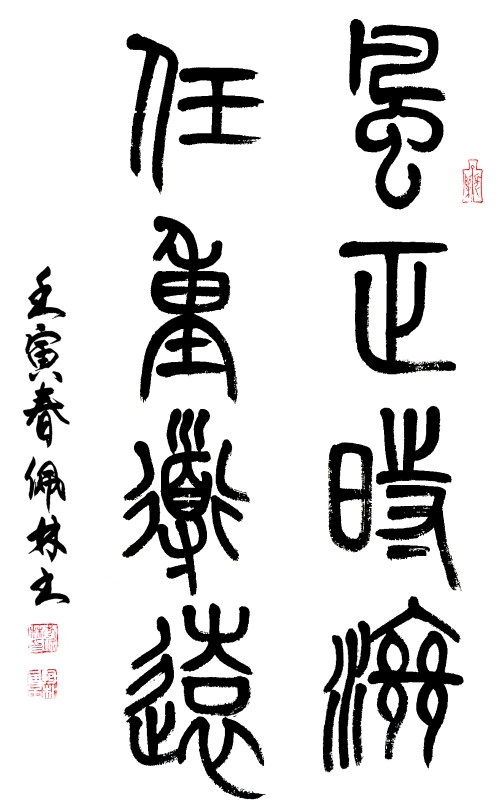 風正時濟
任重道遠
壬寅春佩林书